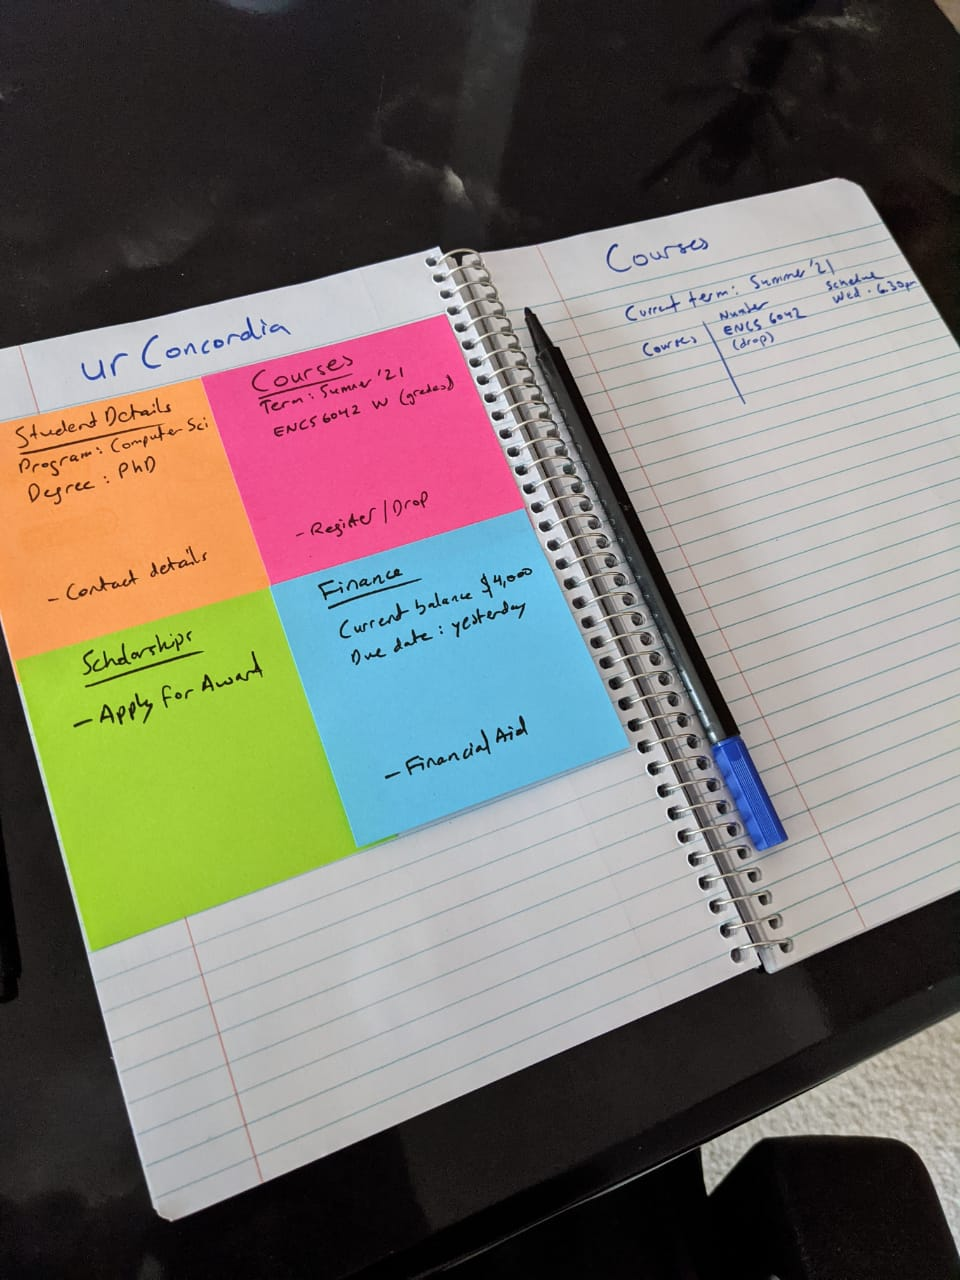 ur Concordia
Student Details
Program: Computer Sci
Degree: PhD
- Contact details
Courses
Term: Summer '21
ENCS 6042 W (grades)
- Register/Drop
Scholarships
- Apply for Award
Finance
Current balance $4,000
Due date: yesterday
- Financial Aid
Courses
Current term: Summer '21
Courses
Number
ENCS 6042
(drop)
Schedule
Wed. 6.30pm